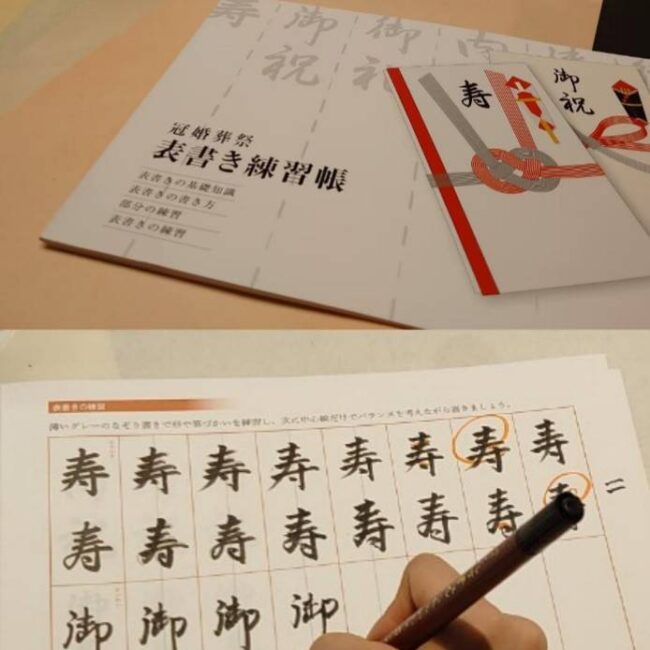 寿 御祝 御祝
寿
御祝
冠婚葬祭
表書き練習帳
表書きの基礎知識
表書きの書き方
部分の練習
表書きの練習
表書きの練習
薄いグレーのなぞり書きで形や筆づかいを練習し、次に中心線だけでバランスを考えながら書きましょう。
寿 寿 寿 寿 寿 寿 寿 寿
寿 寿 寿 寿 寿 寿 寿 寿
御 御 御 御